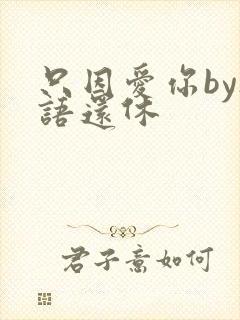 只因爱你by
語還休
君子意如何